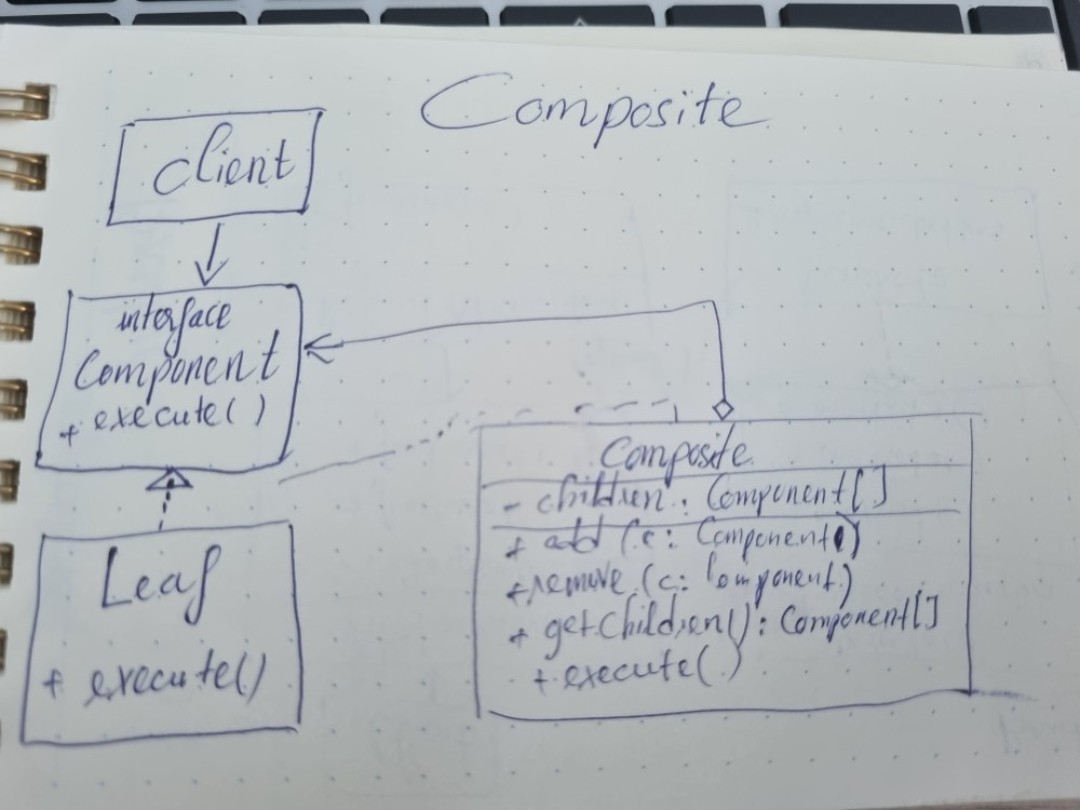 Composite
client
interface
Component
+ execute()
Leaf
+ execute()
Composite
- children: Component[]
+ add (c: Component)
+ remove (c: Component)
+ getChildren(): Component[]
+ execute()